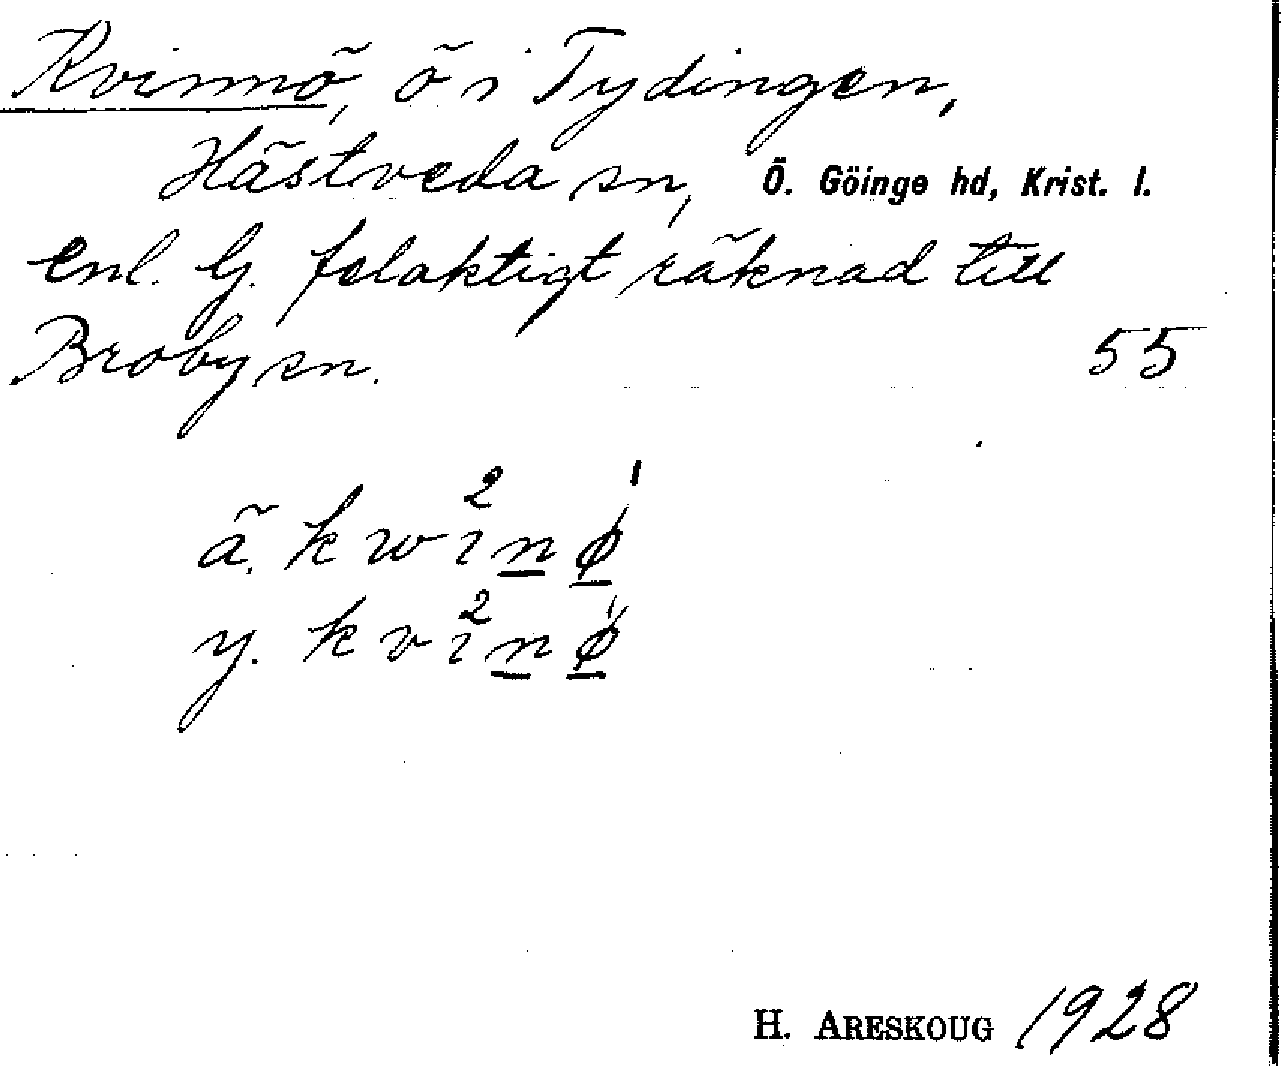 Kvinnö, ö i Tydingen,
Hästveda sn, Ö. Göinge hd, Krist. l.
enl. G. felaktigt räknad till
Broby sn. 55
ä. kwi2nǿ̱
y. kvi2nø̱̋
H. ARESKOUG 1928